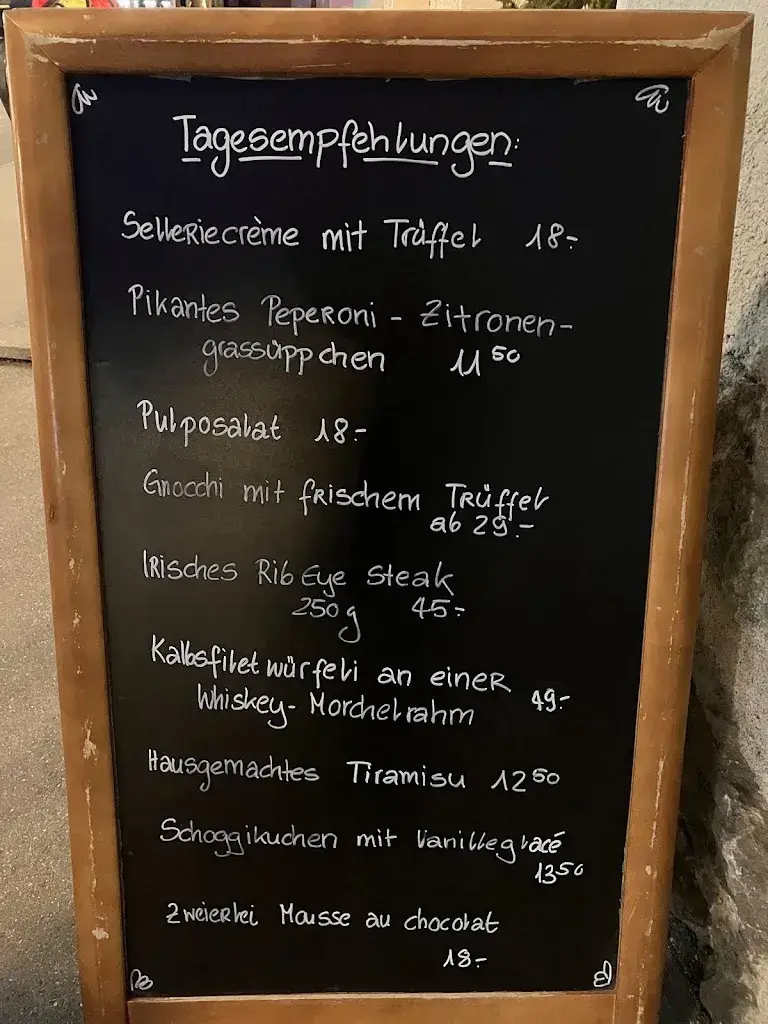 Tagesempfehlungen:
Selleriecrème mit Trüffel 18.-
Pikantes Peperoni - Zitronen-
grassüppchen 11 50
Pulposalat 18.-
Gnocchi mit frischem Trüffel
ab 29.-
Irisches Rib Eye Steak
250g 45.-
Kalbsfiletwürfeli an einer
Whiskey- Morchelrahm 49.-
Hausgemachtes Tiramisu 12 50
Schoggikuchen mit Vanilleglacé
13 50
Zweierlei Mousse au chocolat
18.-